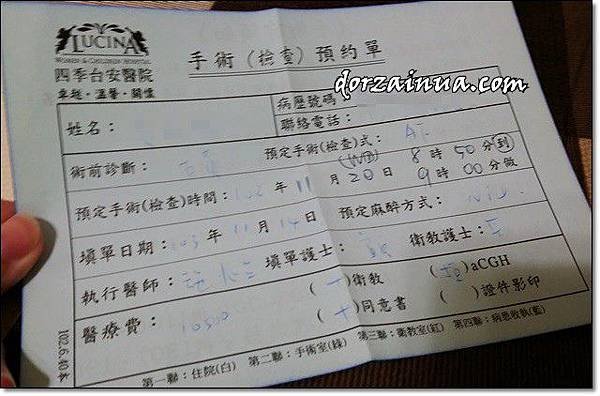 LUCINA
WOMEN & CHILDREN HOSPITAL
四季台安醫院
卓越・溫馨・關懷
手術(檢查)預約單
dorzainua.com
姓名：
病歷號碼
聯絡電話：
術前診斷：
預定手術(檢查)式：
預定手術(檢查)時間： 年 11 月 20 日 8 時 50 分(到)
9 時 00 分做
填單日期： 103 年 11 月 14 日
預定麻醉方式：
執行醫師：
填單護士：
衛教護士：
醫療費：
( )衛教
( )aCGH
( )同意書
( )證件影印
第一聯：住院(白) 第二聯：手術室(綠) 第三聯：衛教室(紅) 第四聯：病患收執(藍)
102.6.40本